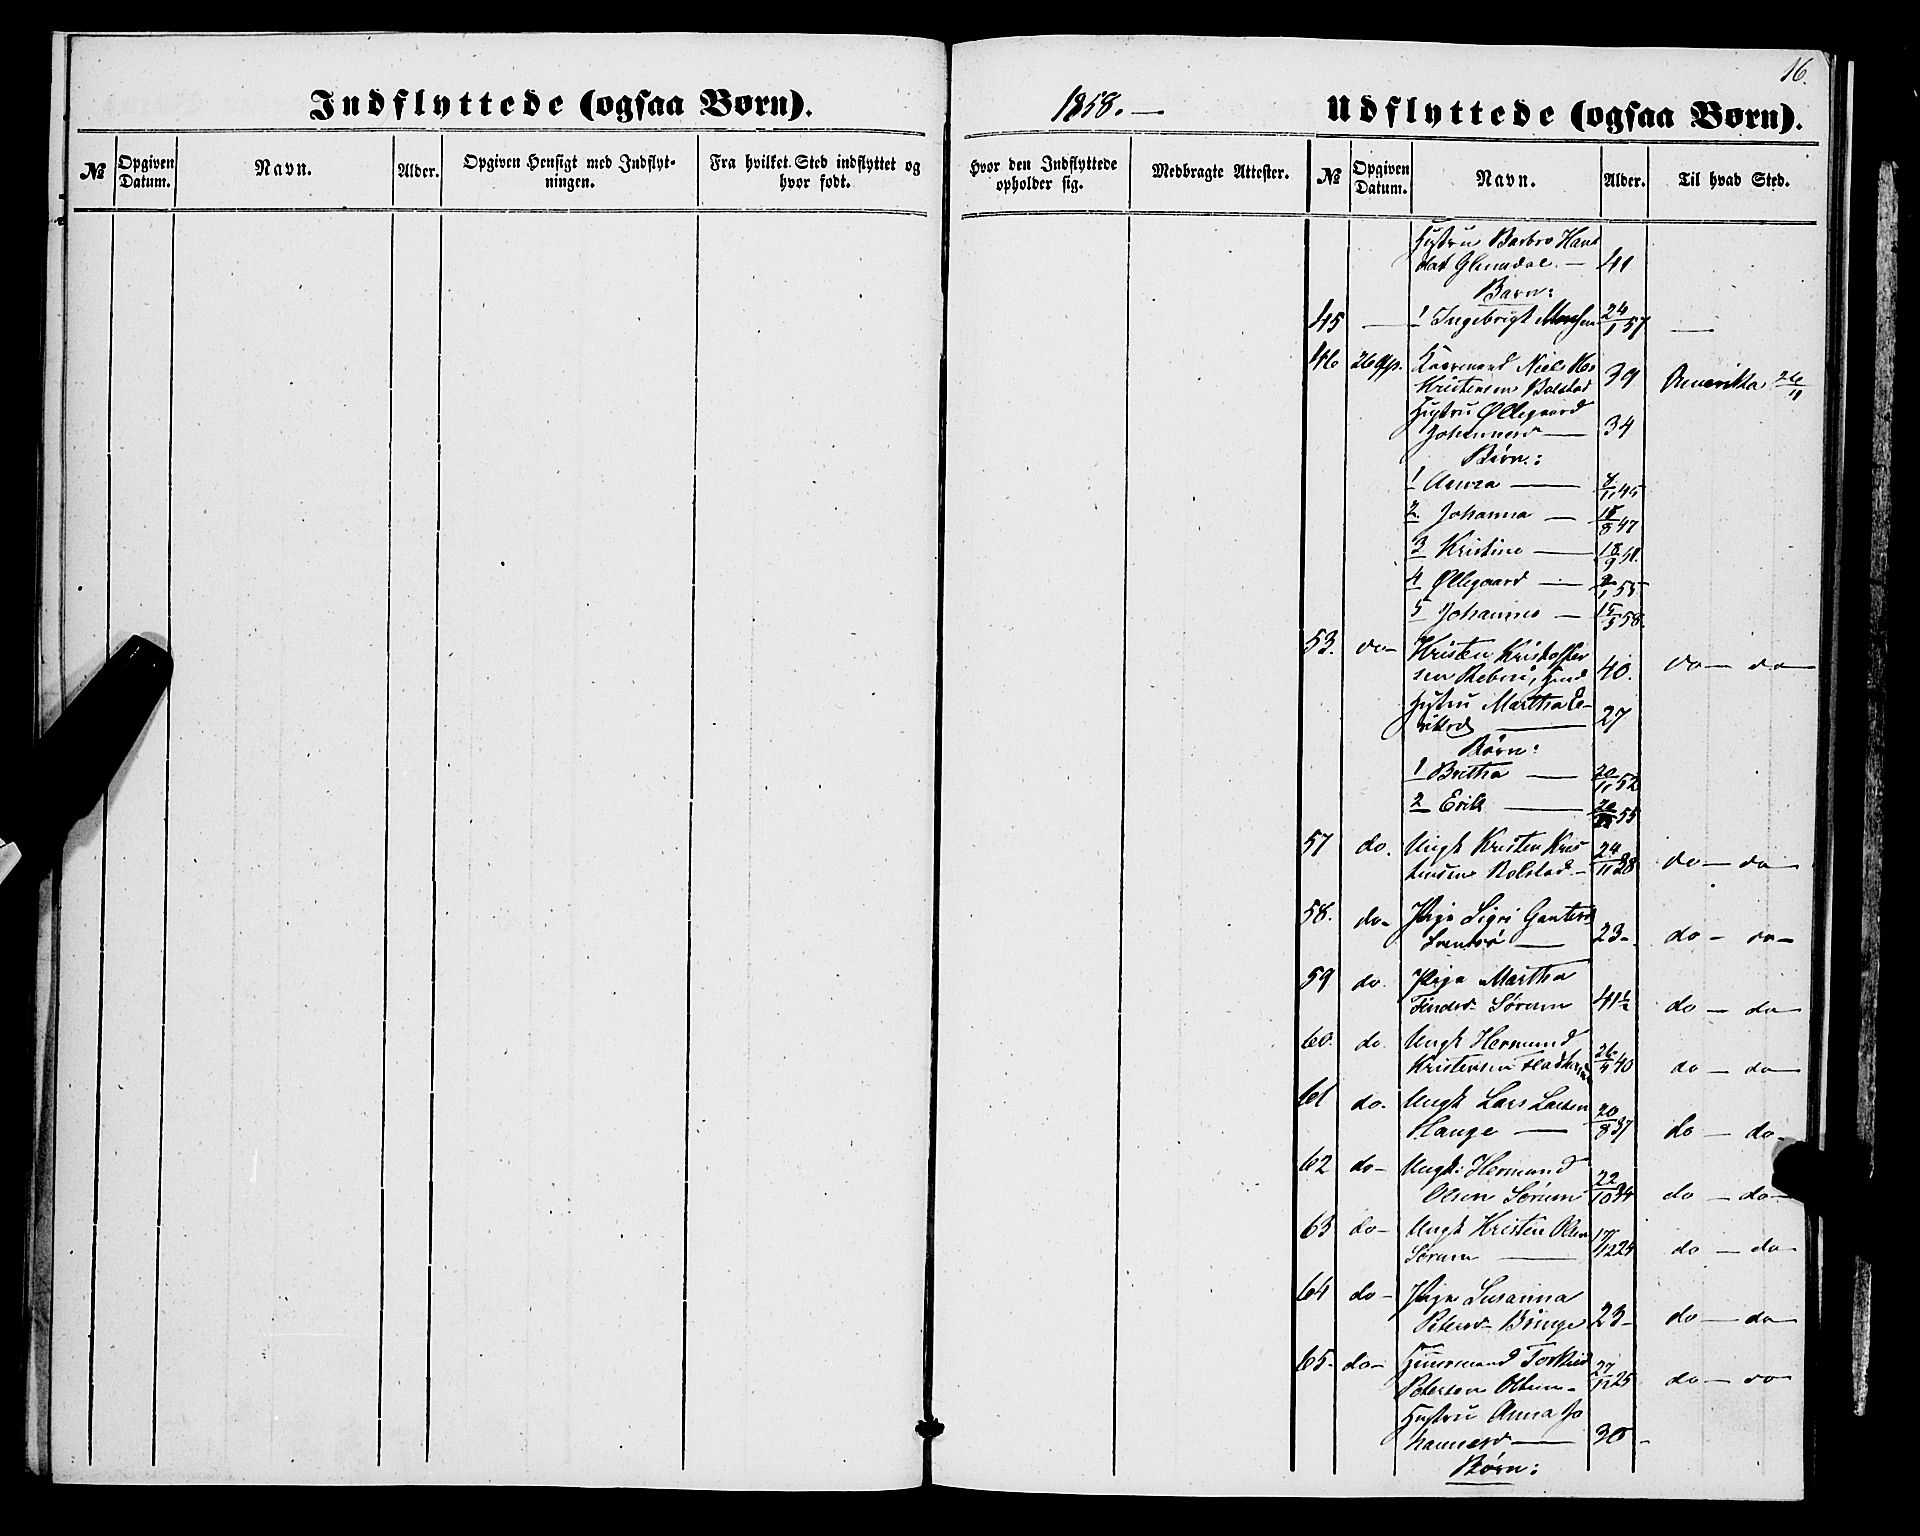 16.
Indflyttede (ogsaa Børn).
1858. —
Udflyttede (ogsaa Børn).
№ Opgiven Datum. Navn. Alder. Opgiven Hensigt med Indflyt-ningen. Fra hvilket Sted indflyttet og hvor født. Hvor den Indflyttede opholder sig. Medbragte Attester. № Opgiven Datum. Navn. Alder. Til hvad Sted.
Hustru Barbro Hans
dat — 41
Barn:
45 — 1 Ingebrigt 57 —
46 26 Niels
Kristensen Bolstad 39 Amerika
Hustru Øllegaard
Johannesd — 34
Børn:
1 Anna —
2. Johanna — 18/8 47
3 Kristine — 18/9
4 Øllegaard — 55
5 Johannes — 15/5 58.
53. do — Kristen Kristoffer
sen 40. do — do —
Hustru Martha E-
riksd — 27
Børn:
1 Brittha — 20/11 52
2 Erik — 55
57 do. Ungk Kristen Kris
tensen Bolstad — 24/11 38 do — do —
58. do — Pige Sigri
— 23 — do — do —
59 do. Pige Martha
Sørum 41½ do — do —
60. do. Ungk Hermund
Kristensen 26/4 40 do — do —
61 do. Ungk Lars Larsen
Hauge — 20/8 37 do — do —
62 do — Ungk: Hermund
Olsen Sørum 22/10 34 do — do —
63 do — Ungk Kristen Olsen
Sørum — 17/12 24 do — do —
64 do — Pige Susanna
Petersd — Bringe 23 — do — do —
65. do — Huusmand Torkild
Petersen 27/12 25 do — do
Hustru Anna Jo
hannesd — 30 —
Børn: